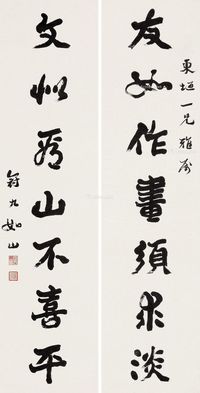 東垣一兄雅屬
友如作畫須求淡
文似看山不喜平
九如山